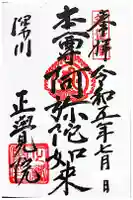 奉拝
令和五年七月 日
本尊阿弥陀如来
深川
正覚院